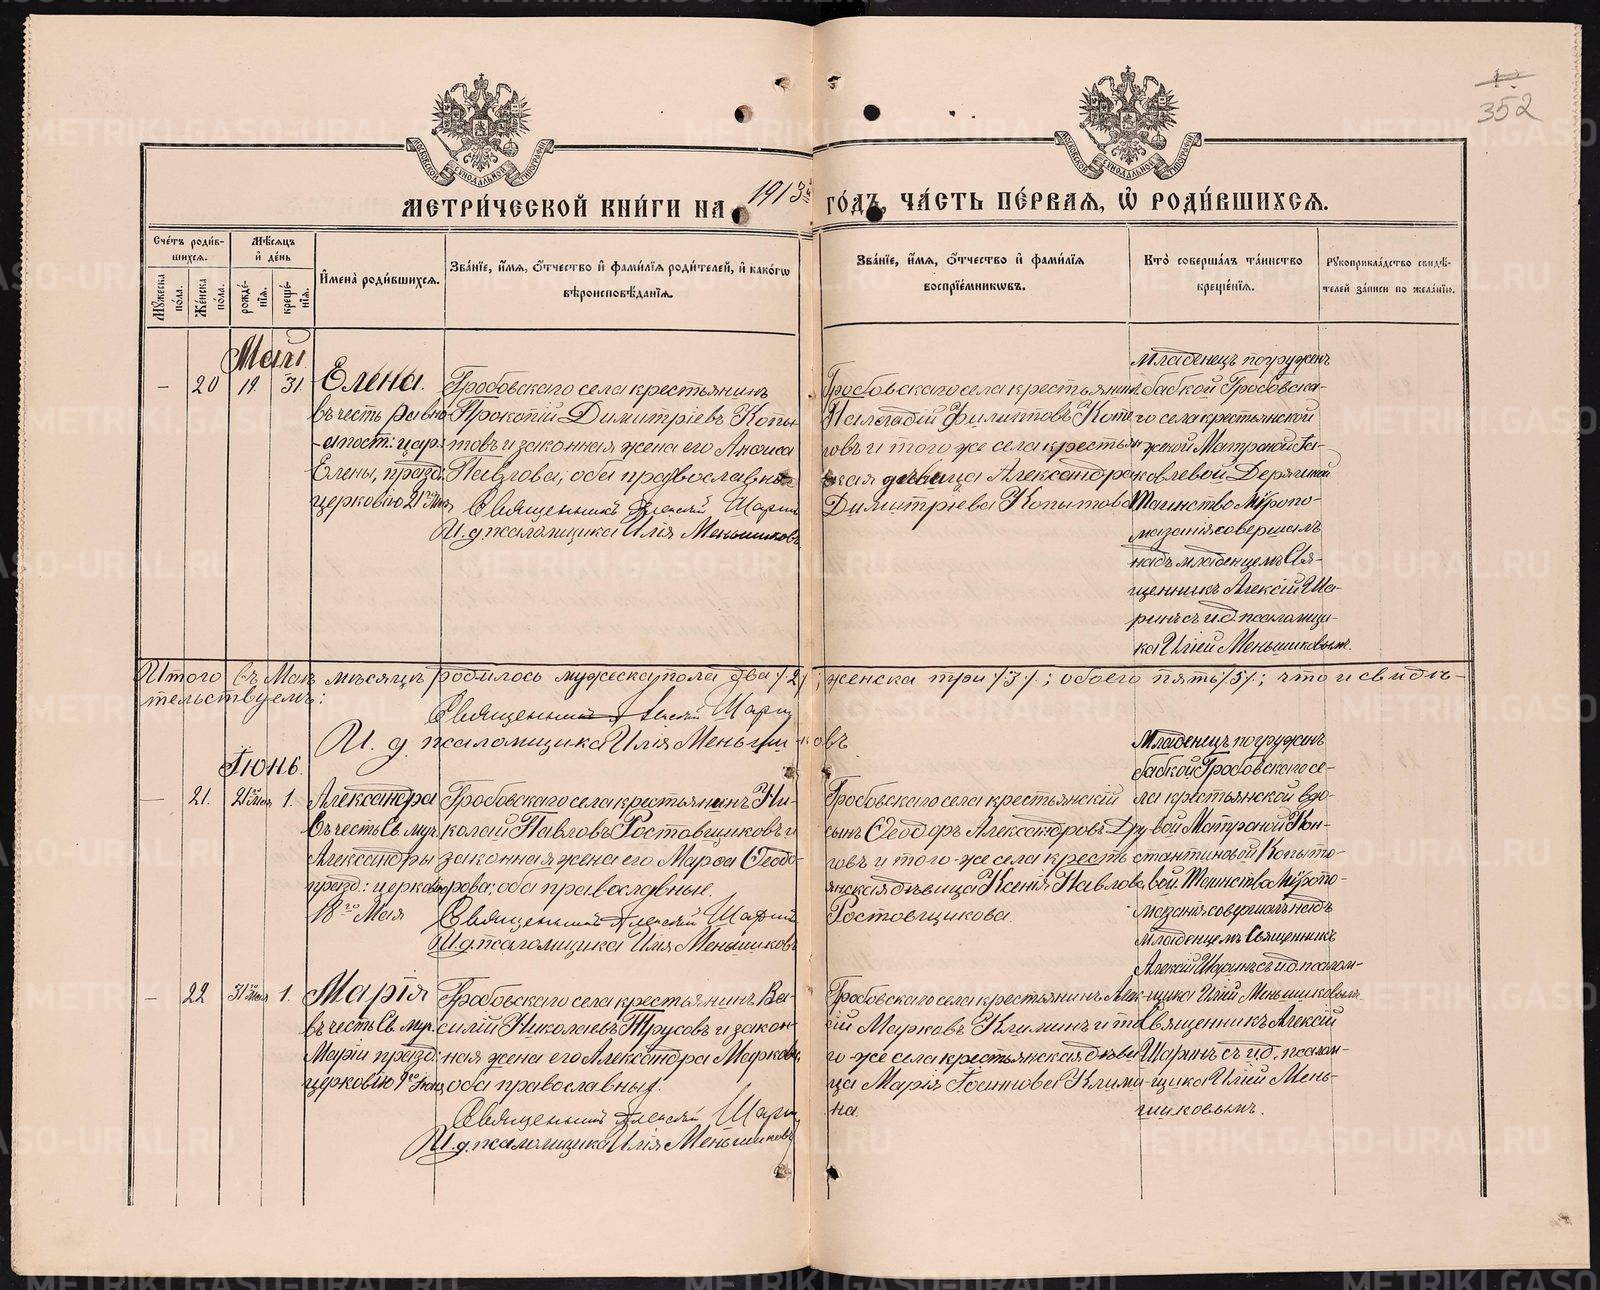 352
МОСКОВСКОЙ СѴНОДАЛЬНОЙ ТИПОГРАФІИ
МОСКОВСКОЙ СѴНОДАЛЬНОЙ ТИПОГРАФІИ
МЕТРИ́ЧЕСКОЙ КНИ́ГИ НА 1913й ГО́ДЪ, ЧА́СТЬ ПЕ́РВАЯ, Ѡ҆ РОДИ́ВШИХСЯ.
Сче́тъ роди́в-
шихся.
Мꙋжеска по́ла.
Же́нска по́ла.
Мѣ́сяцъ
и҆ де́нь
рожде́-
нїя.
креще́-
нїя.
И҆мена̀ роди́вшихся.
Зва́нїе, и҆́мя, ѻ҆́тчество и҆ фами́лїя роди́телей, и҆ како́гѡ
вѣроисповѣ́данїя.
Зва́нїе, и҆́мя, ѻ҆́тчество и҆ фами́лїя
воспрїе́мникѡвъ.
Кто̀ соверша́лъ та́инство
креще́нїя.
Рꙋкоприкла́дство свидѣ́-
телей за́писи по жела́нїю.
Май
– 20 19. 31. Елена.
въ честь равно
-апост: цар.
Елены, празд.
церковію 21го Мая
Гробовскаго села крестьянинъ
Прокопій Димитріевъ Копы-
товъ и законная жена его Анисія
Павлова, оба православные
Священникъ Алексій Шаринъ
И. д. псаломщика Илія Меньшиковъ
Гробовскаго села крестьянинъ
Палладій Филипповъ Копы
товъ и того же села крестьян
ская девица Александра
Димитріева Копытова
Младенецъ погруженъ
бабкой Гробовска-
го села крестьянской
женой Матроной Іа-
ковлевой Дерягиной
Таинство Мѵропо-
мазанія совершалъ
надъ младенцемъ Свя-
щенникъ Алексій Ша-
ринъ съ и. д. псаломщи-
ка Иліей Меньшиковымъ.
Итого въ Маѣ мѣсяцѣ родилось мужеска пола два /2/, женска три /3/; обоего пять /5/; что и свидѣ-
тельствуемъ:
Священникъ Алексій Шаринъ
И. д. псаломщика Илія Меньшиковъ
Іюнь.
– 21. 21го Мая 1. Александра
Въ честь Св. муч.
Александры
празд.: церковію
18го Мая
Гробовскаго села крестьянинъ Ни-
колай Павловъ Ростовщиковъ и
законная жена его Марѳа Ѳеодо-
рова; оба православные.
Священникъ Алексій Шаринъ
И. д. псаломщика Илія Меньшиковъ
Гробовскаго села крестьянскій
сынъ Ѳеодоръ Александровъ Дру-
говъ и того-же села кресть
янская дѣвица Ксенія Павлова
Ростовщикова.
Младенецъ погруженъ
бабкой Гробовскаго се-
ла крестьянской вдо-
вой Матроной Кон-
стантиновой Копыто-
вой. Таинство Мѵропо-
мазанія совершалъ надъ
младенцемъ Священникъ
Алексій Шаринъ съ и. д. псалом-
щика Иліей Меньшиковымъ
– 22 31го Мая 1. Марія
въ честь Св. муч.
Маріи празд:
церковію 9го Іюня,
Гробовскаго села крестьянинъ Ва-
силій Николаевъ Трусовъ и закон-
ная жена его Александра Маркова,
оба православныя.
Священникъ Алексій Шаринъ
И. д. псаломщика Илія Меньшиковъ
Гробовскаго села крестьянинъ Алек-
сій Марковъ Климинъ и то
го-же села крестьянская дѣви
ца Марія Іоаннова Клими-
на.
Священникъ Алексій
Шаринъ съ и. д. псалом-
щика Иліей Мень-
шиковымъ.